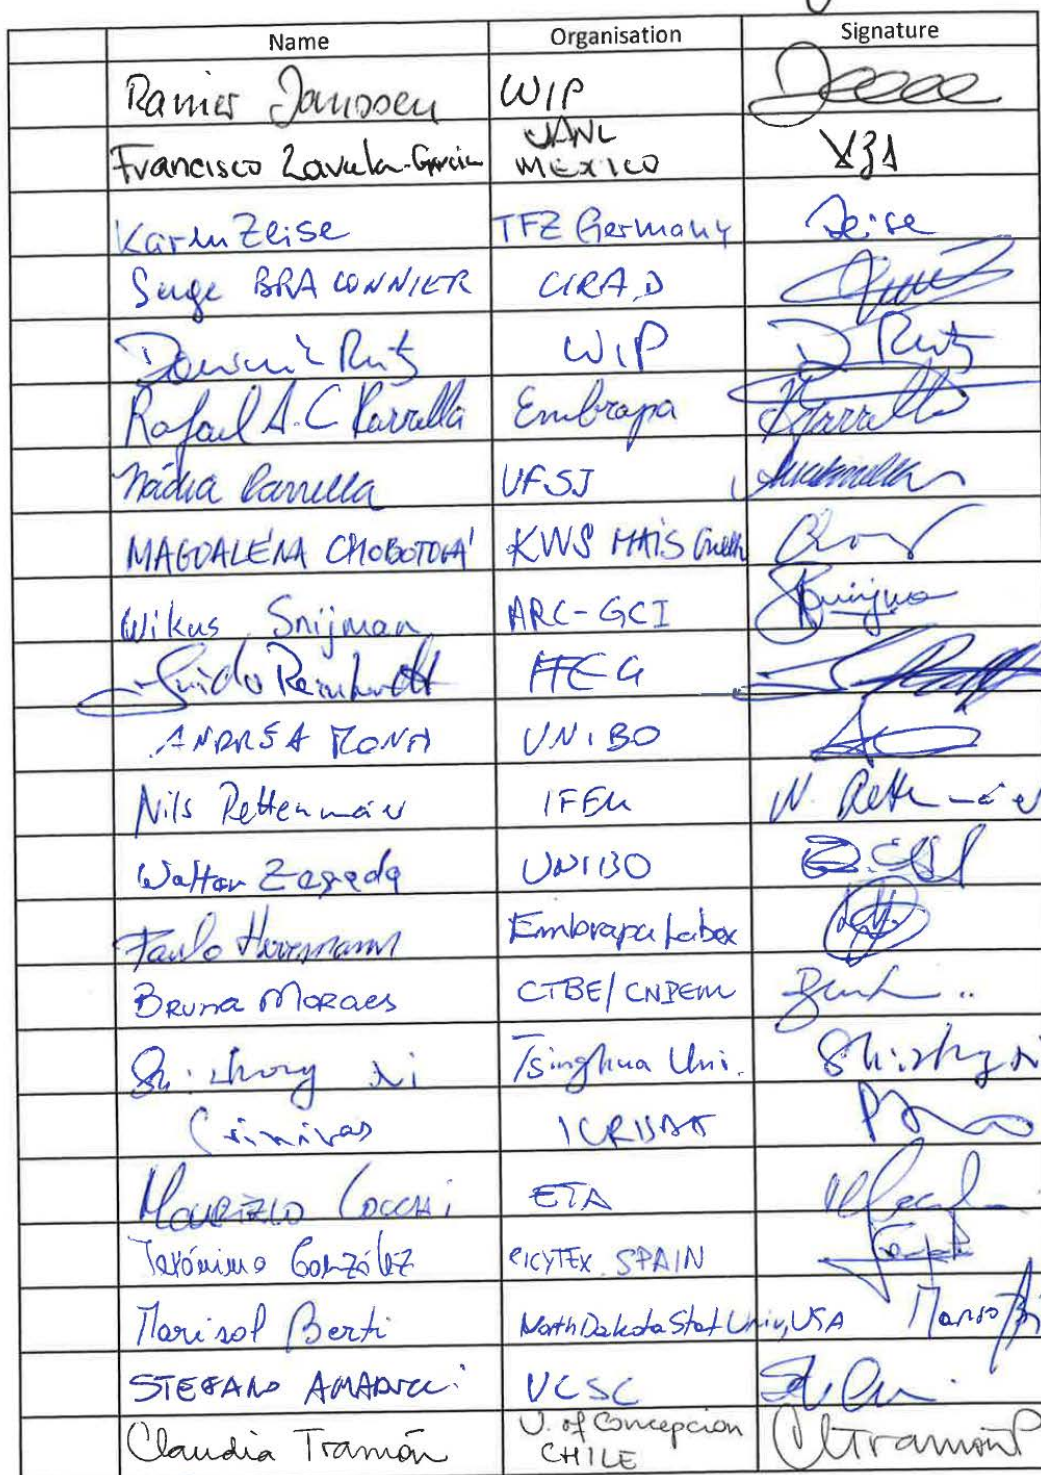 Name Organisation Signature
Rainer Janssen WIP
Francisco Zavala-García UANL
MEXICO
Karin Zeise TFZ Germany Zeise
Serge BRACONNIER CIRAD
Dominik Rutz WIP D Rutz
Rafael A. C. Parrella Embrapa
Nádia Parrella UFSJ
MAGDALÉNA CHOBOTOVÁ KWS MAIS GmbH
Wikus Snijman ARC-GCI
Guido Reinhardt
ANDREA MONTI UNIBO
Nils Rettenmaier IFEU N. Rettenmaier
Walter Zegada UNIBO
Paulo Herrmann Embrapa Labex
BRUNA MORAES CTBE/CNPEM
Shizhong Li Tsinghua Uni. Shizhong Li
Srinivas ICRISAT
MAURIZIO COCCHI ETA
Jerónimo González CICYTEX. SPAIN
Marisol Berti North Dakota Stat Univ, USA
STEFANO AMADUCCI UCSC
Claudia Tramón U. of Concepcion CTramónP
CHILE